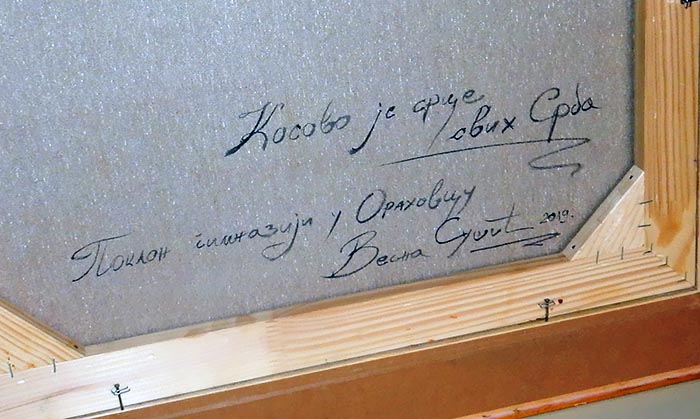 Косово је срце
свих Срба
Поклон гимназији у Ораховцу
Весна Сушић 2019.